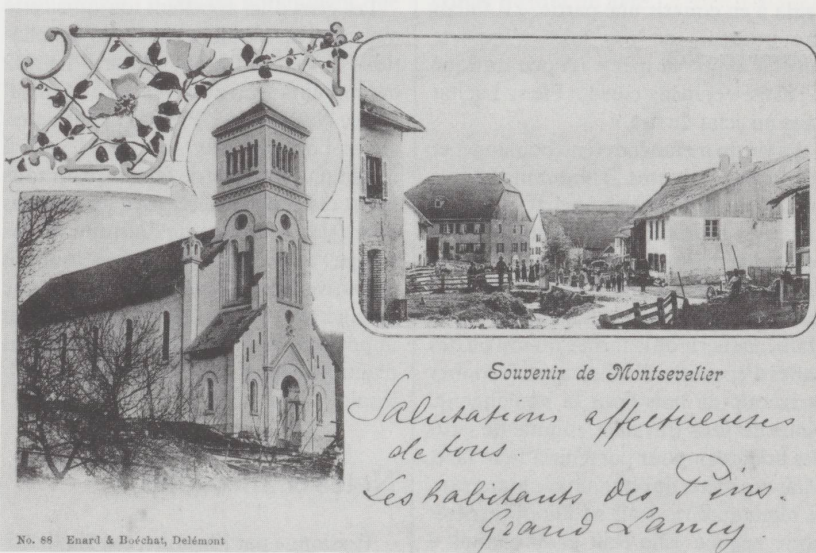 Souvenir de Montsevelier
Salutations affectueuses
de tous.
Les habitants des Pins.
Grand Lancy.
No. 88 Enard & Boéchat, Delémont